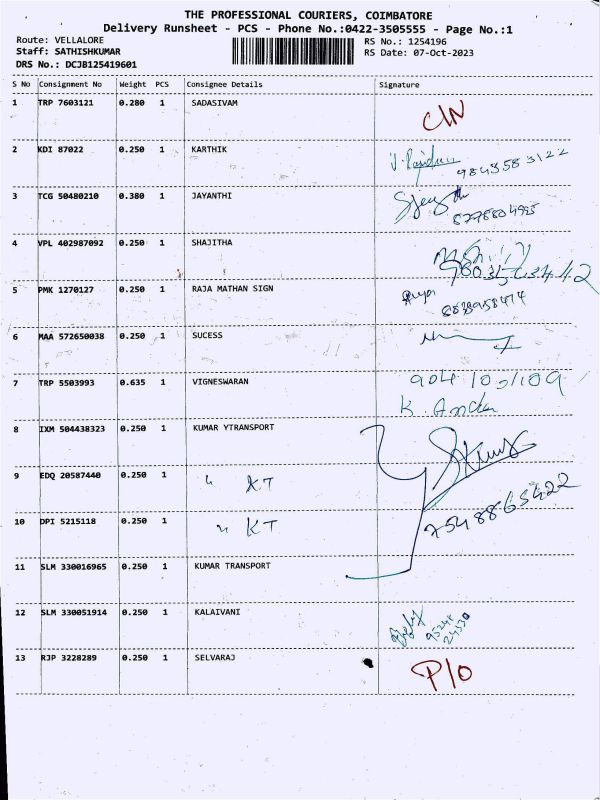 THE PROFESSIONAL COURIERS, COIMBATORE
Delivery Runsheet - PCS - Phone No.:0422-3505555 - Page No.:1
Route: VELLALORE RS No.: 1254196
Staff: SATHISHKUMAR RS Date: 07-Oct-2023
DRS No.: DCJB125419601
S No Consignment No Weight PCS Consignee Details Signature
1 TRP 7603121 0.280 1 SADASIVAM C/N
2 KDI 87022 0.250 1 KARTHIK
3 TCG 50480210 0.380 1 JAYANTHI
4 VPL 402987092 0.250 1 SHAJITHA
5 PMK 1270127 0.250 1 RAJA MATHAN SIGN
6 MAA 572650038 0.250 1 SUCESS
7 TRP 5503993 0.635 1 VIGNESWARAN
8 IXM 504438323 0.250 1 KUMAR YTRANSPORT
9 EDQ 20587440 0.250 1 " KT
10 DPI 5215118 0.250 1 " KT 7548865422
11 SLM 330016965 0.250 1 KUMAR TRANSPORT
12 SLM 330051914 0.250 1 KALAIVANI
13 RJP 3228289 0.250 1 SELVARAJ P/O